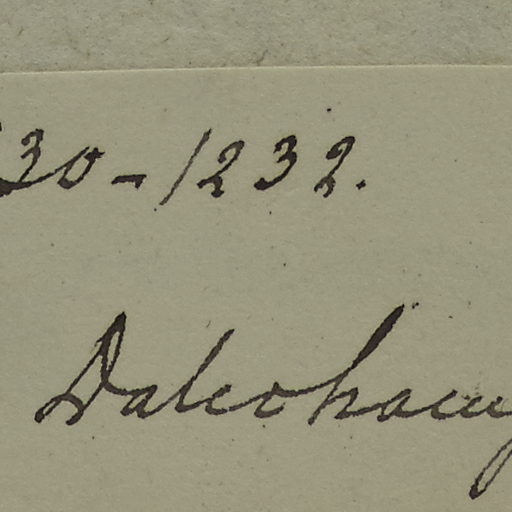 30-1232.
Dalechamp